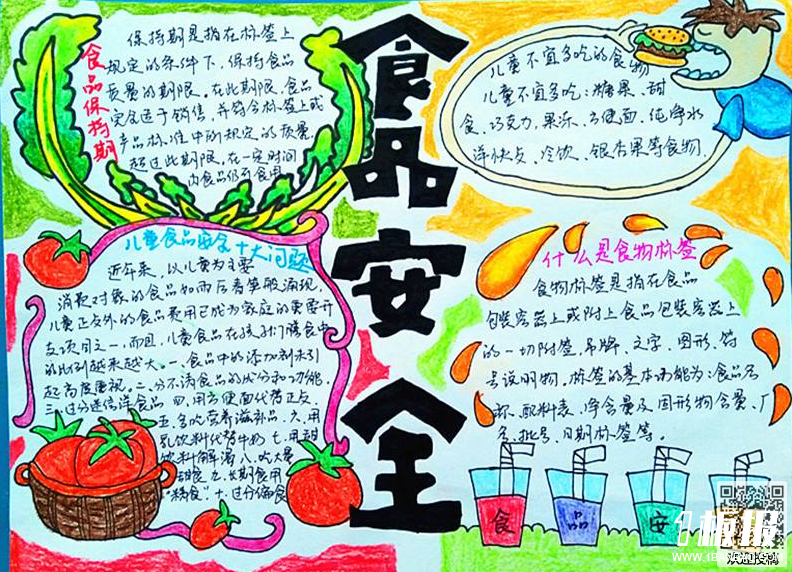 食品安全
食品保持期
保持期是指在标签上
规定的条件下，保持食品
质量的期限。在此期限，食品
完全适于销售，并符合标签上或
产品标准中所规定的质量，
超过此期限，在一定时间
内食品仍可食用
儿童不宜多吃的食物
儿童不宜多吃：糖果、甜
食、巧克力、果冻、方便面、纯净水
洋快点、冷饮、银杏果等食物.
儿童食品安全十大问题
近年来，以儿童为主要
消费对象的食品如雨后春笋般涌现，
儿童正交外的食品费用已成为家庭的重要开
支项目之一，而且，儿童食品在孩子们膳食中
的比例越来越大。一、食品中的添加剂未引
起高度重视。二、分不清食品的成分和功能.
三、过分迷信洋食品 四、用方便面代替正
五、多吃营养滋补品 六、用
乳饮料代替牛奶 七、用甜
饮料解渴 八、吃大量
甜食 九、长期食用
"精食" 十、过分偏食
什么是食物标签
食物标签是指在食品
包装容器上或附上食品包装容器上
的一切附签、吊牌、文字、图形、符
号说明物，标签的基本功能为：食品名
称、配料表、净含量及固形物含量、厂
名、批号、日期标签等。
食 品 安
板报
www.1banbao.com
欢迎投稿